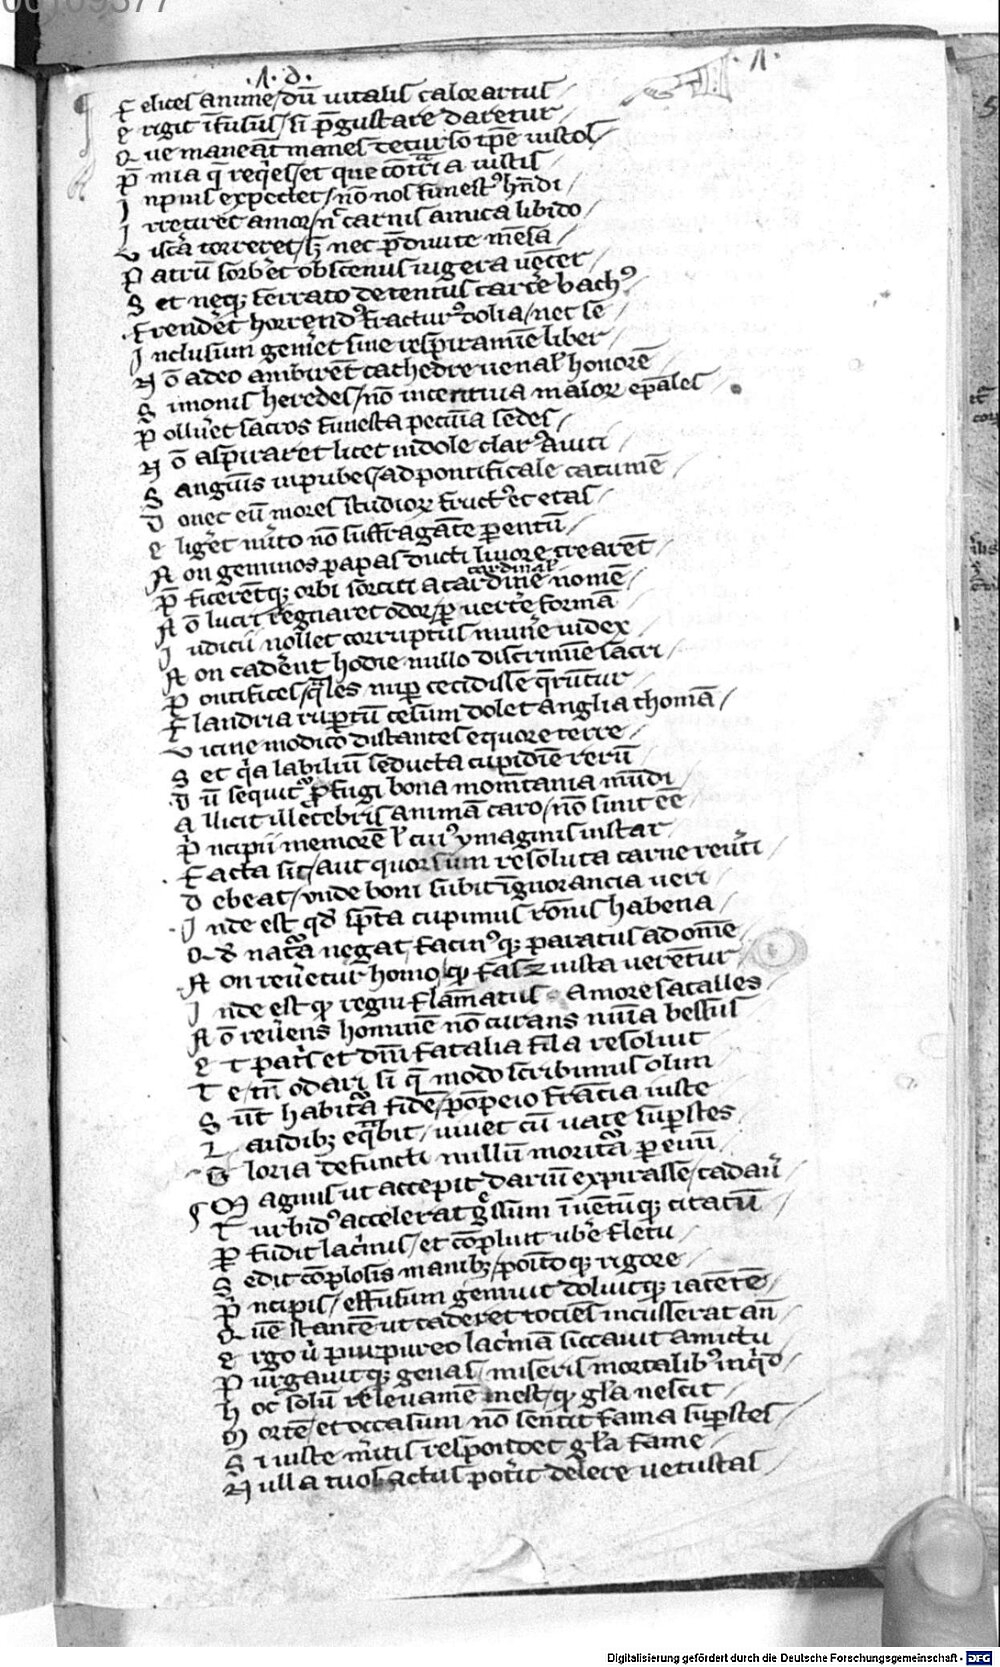 00109377
.Λ. d. .Λ.
F elices anime / dū vitalis calor artus /
E rigit īfusus / si p̄gustare daretur /
Q ue maneāt manes decursо tp̄e iustos /
P̄ mia q̄ reqͥes / et que cōtͣria iustis /
I npiis expectet / nō nos funestꝰ hn̄di /
I rretiret amor / nͨ carnis amica libido /
V iscͣa torreret / sꝫ nec p̄divite mēsa /
P atrū sorbˀet obscenus iugera vēter /
S et neqꝫ ferrato detentus carcˀe bachꝰ /
F rendˀet horrendꝰ fracturꝰ dolia / nec se /
I nclusum gemˀet sine respiramīe liber /
N ō adeo ambirēt cathedre venalˀ honorē /
S imonis heredes / nō incentiva maloꝝ /
P ollˀuet sacros funesta pecūia sedes /
N ō aspiraret licet indole clarꝰ aviti /
S anguīs inpubes / ad pontificale cacumē /
D onec eū mores studioꝝ fructꝰ et etas /
E ligˀet mˀito nō suffragāte pˀentū /
N on geminos papas ducti livore crearēt /
cardinalˀ
P̄ ficerētqꝫ orbi sortiti a cardine nomē /
N ō lucri regnaret odor / pˀvertˀe formā
I udicii nollet corruptus munˀe iudex /
N on cadˀent hodie nullo discrimīe sacri /
P ontifices / qͣles nup cecidisse qˀunt̄ur
F landria ruptū celsum dolet anglia thomā /
V icine modico distantes equore terre /
S et qͥa labiliū seducta cupidīe rerū /
D ū sequitꝰ pfugi bona momētania mūdi /
A llicit illecebris animā caro / nō sinit eē
P̄ ncipii memorē lˀ cuiꝰ ymaginis instar /
F acta sit / aut quorsum resoluta carne revˀti /
D ebeat / unde boni subit īgnorancia veri
I nde est qd̄ sp̄ta cupimus rōnis habena /
Q d̄ natͣa negat, facinꝰqꝫ paratus ad omē
N on revˀetur homo / qꝙ fas ⁊ iusta verētur
I nde est qꝙ regni flāmatus amore satalles
N ō revˀens hominē nō curans nūia bessus
E t patͥs et dn̄i fatalia fila resolvit
T e / tn̄ o dari si q̄ modo scribimus olim
S ūt habitͣa fidē / pompeio francia iuste
L audibꝫ eqͣbit / vivet cū vate supstes
G loria defuncti nullū moritͣa pˀ evū
M agnus ut accepit dariū expirasse / cadavˀ /
T urbidꝰ accelerat gͤssum īventūqꝫ citatū
P fudit lacͥmis / et cōpluit ubˀe fletū /
S edit cōplosis manibꝫ / positoqꝫ rigore
P̄ ncipis / effusum gemuit doluitqꝫ iacētē /
Q uē stantē ut caderet tociēs incusserat an̄ /
E rgo vͥ purpureo lacͥmā siccavit amictu
P urgavitqꝫ genas / miseris mortalibꝰ inqͥd /
H oc solū relevamē inest / qꝙ glͣa nescit /
M ortē / et occasum nō sentit fama supstes /
S i iuste mˀitis respondet glͣa fame /
N ulla tuos actus potˀit delere vetustas /
Digitalisierung gefördert durch die Deutsche Forschungsgemeinschaft - DFG